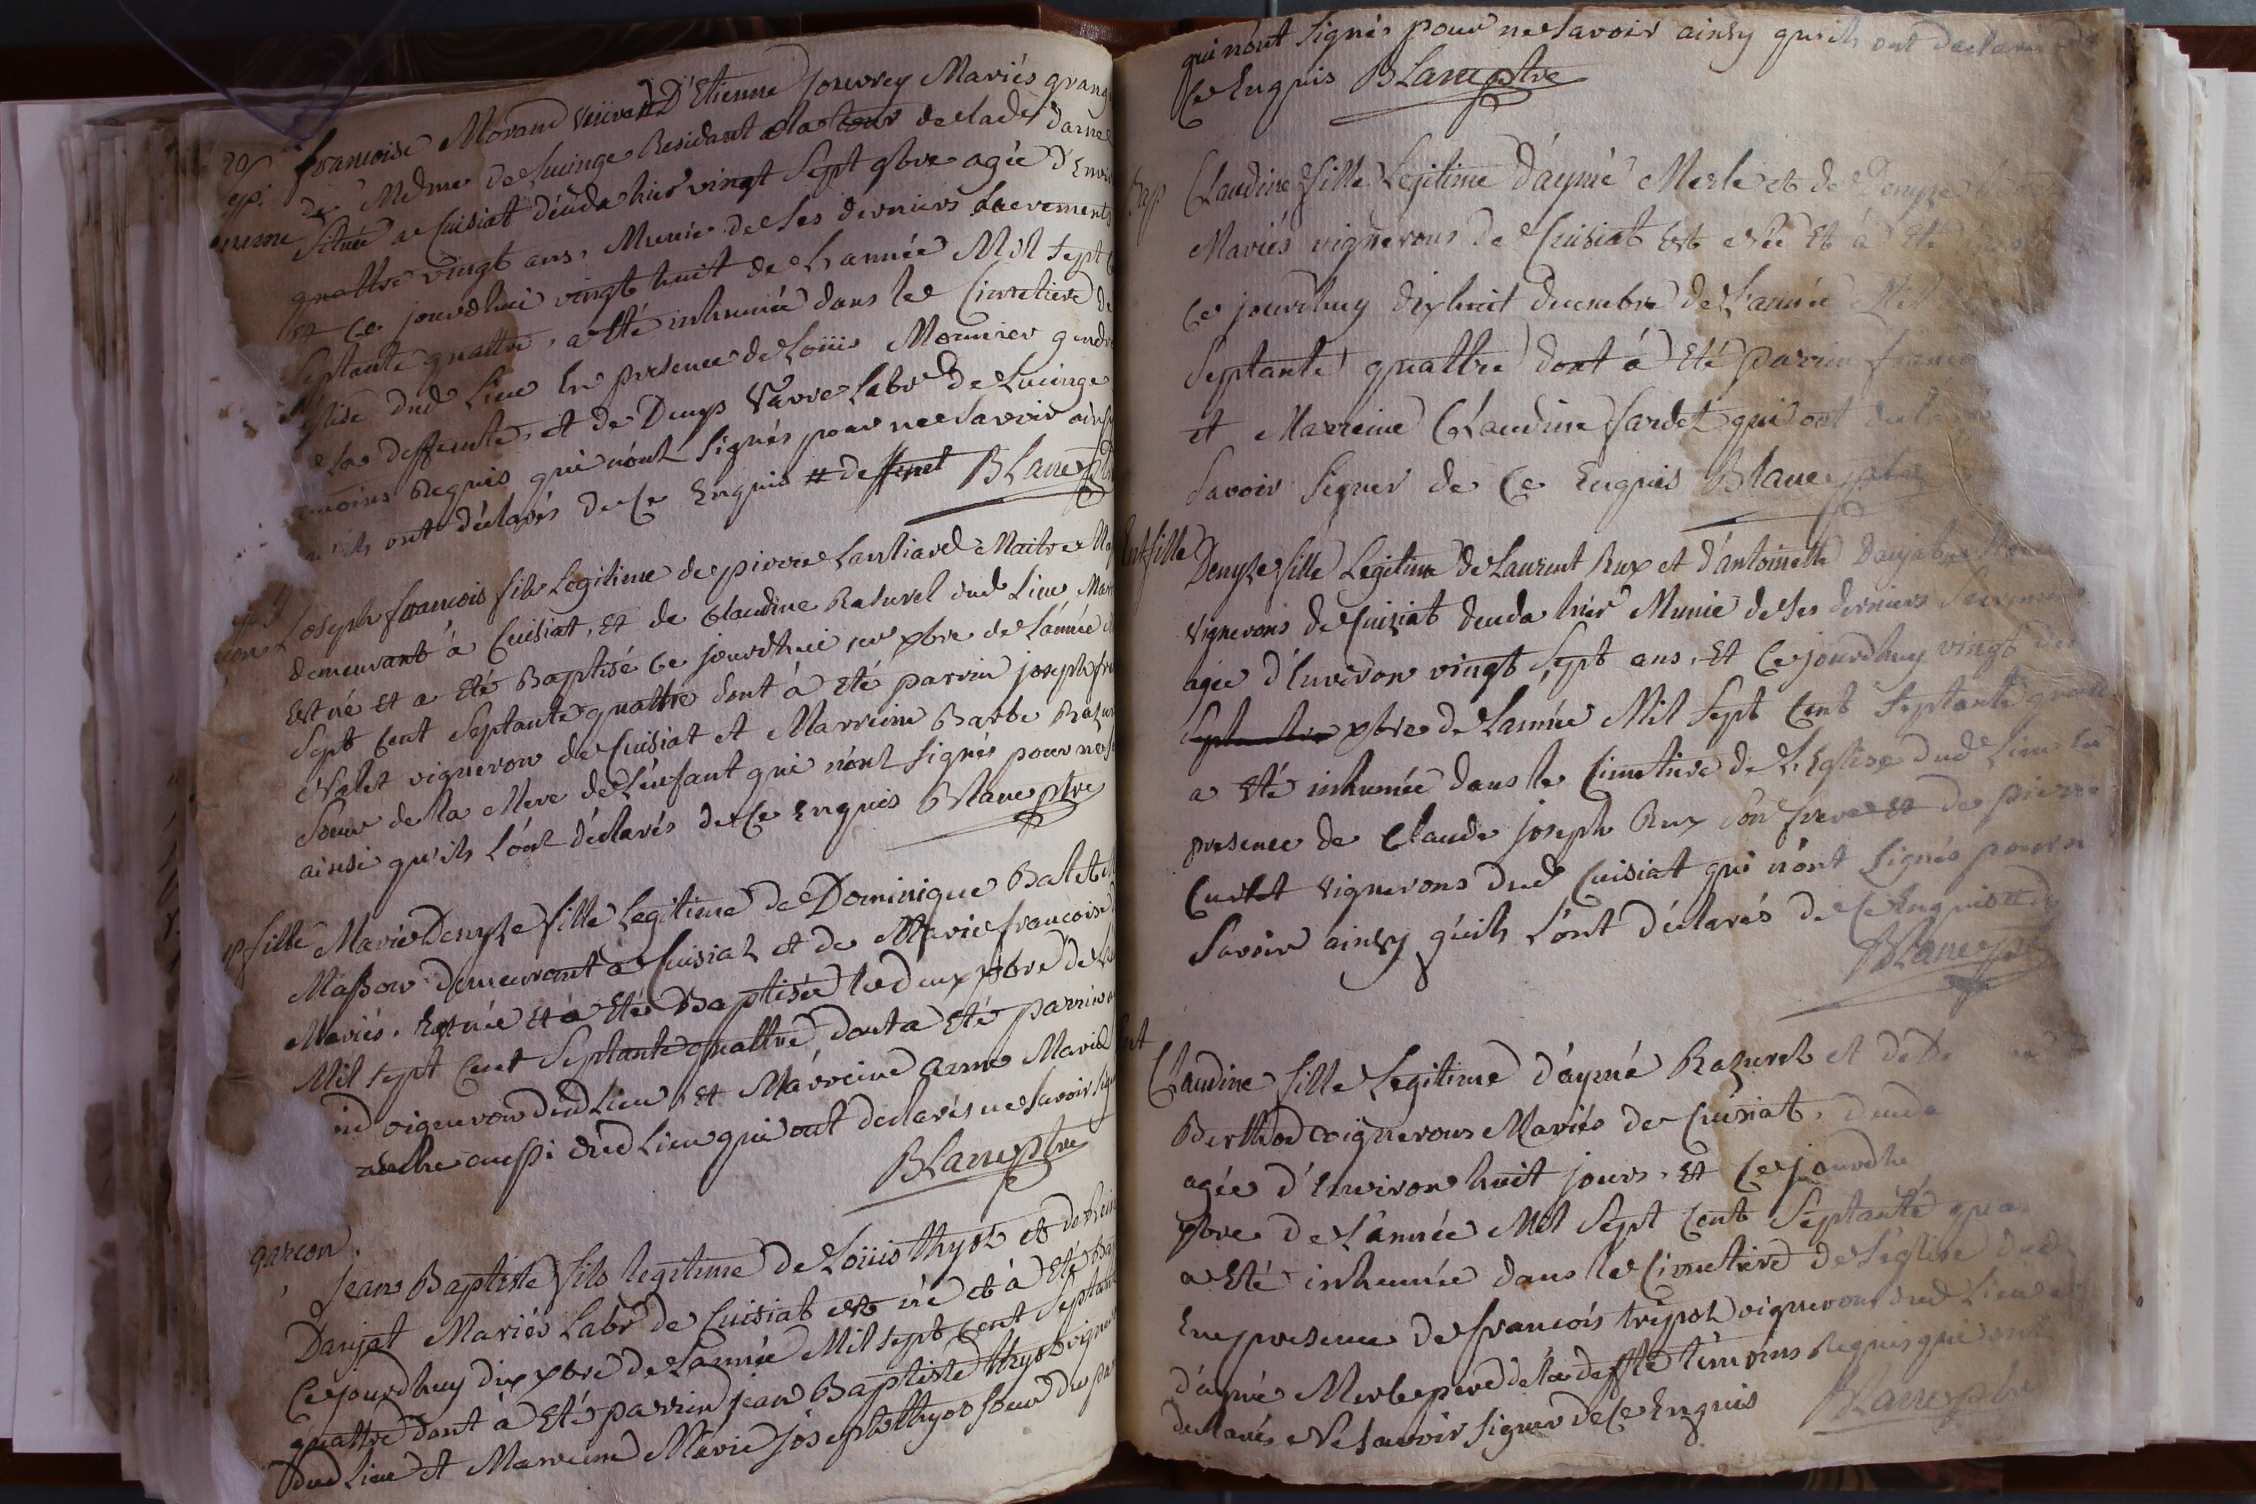 françoise Morand veuve D'Etienne jouvrey Mariés grang
de Mr de Lucinge Residant a la tour de lade dame
femme Située a Cuisiat décéda hier vingt Sept 9bre agée d'Envi
quattre vingt ans, Munie de Ses derniers Sacrements
et Ce jourdhui vingt huit de L'année Mil Sept
Septante quattre, a Eté inhumée dans le Cimetiere de
Eglise dud Lieu En presence de Loüis Mounier gendre
de la deffunte, et de Denys Varre Labr de Lucinge
moins Requis qui n'ont Signés pour ne Savoir ainsi
qu'ils ont déclarés de Ce Enquis # deffunt BLanc ptre
Joseph françois fils Legitime de pierre Lantiard Maitre
demeurant à Cuisiat, et de Claudine Razurel dud Lieu Mar
Est né et a Eté Baptisé Ce jourdhui xbre de L'année
Sept Cent Septante quattre dont à Eté parrin joseph fr
valet vigneron de Cuisiat et Marreine Barbe Razur
Soeur de la Mere de L'enfant qui n'ont Signés pour ne
ainsi qu'ils L'ont déclarés de Ce Enquis BLanc ptre
fille Marie Denyze fille Legitime de Dominique Balet
Masson demeurant a Cuisiat et de Marie francoise
Mariés, Est née et a Eté Baptisée le deux xbre de L
Mil sept Cent Septante quattre, dont a Eté parrin
vigneron dud Lieu, et Marreine anne Marie
aussi dud Lieu qui ont declarés ne Savoir sign
BLanc ptre
garcon
Jean Baptiste fils legitime de Loüis thyot et de Reine
Danjat Mariés Labr de Cuisiat est né et à Eté Ba
Cejourdhuy dix xbre de L'année Mil sept Cent Septant
quattre dont à Eté parrin jean Baptiste thyot vigner
dud Lieu et Marreine Marie josephte thyot soeur du pa
qui n'ont Signés pour ne Savoir ainsy qu'ils ont declarés
Ce Enquis BLanc ptre
Claudine fille Legitime d'aymé Merle et de Denyze
Mariés vignerons de Cuisiat Est Née Et à Eté
Ce jourdhuy dixhuit decembre de L'année Mil
Septante quattre dont à Eté parrin franco
et Marreine Claudine fardet qui ont decla
Savoir Signer de Ce Enquis BLanc ptre
Ent fille
Denyze fille Legitime de Laurent Rux et d'antoinette Danjat
vignerons de Cuisiat deceda hier Munie de Ses derniers Sacremens
agée d'Environ vingt Sept ans, Et Cejourdhuy vingt
xbre de Lannée Mil Sept Cent Septante quattr
a Eté inhumée dans le Cimetiere de L'Eglise dud Lieu En
presence de Claude joseph Rux Son frere et de pierre
Curlet vignerons dud Cuisiat qui n'ont Signés pour n
Savoir ainsy qu'ils L'ont déclarés de Ce Enquis
BLanc ptre
Ent
Claudine fille Legitime d'aymé Razurel et de De
Berthod vignerons Mariés de Cuisiat, deceda
agée d'Environ huit jours, Et Ce jourdh
xbre de L'année Mil Sept Cent Septante qua
a Eté inhumée dans le Cimetiere de L'église dud
En presence de françois tripoz vigneron dud Lieu et
d'aymé Merle pere de la deffte témoins Requis qui ont
declarés Ne Savoir Signer de Ce Enquis BLanc ptre